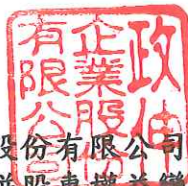 政伸
企業股份
有限公司
股份有限公司